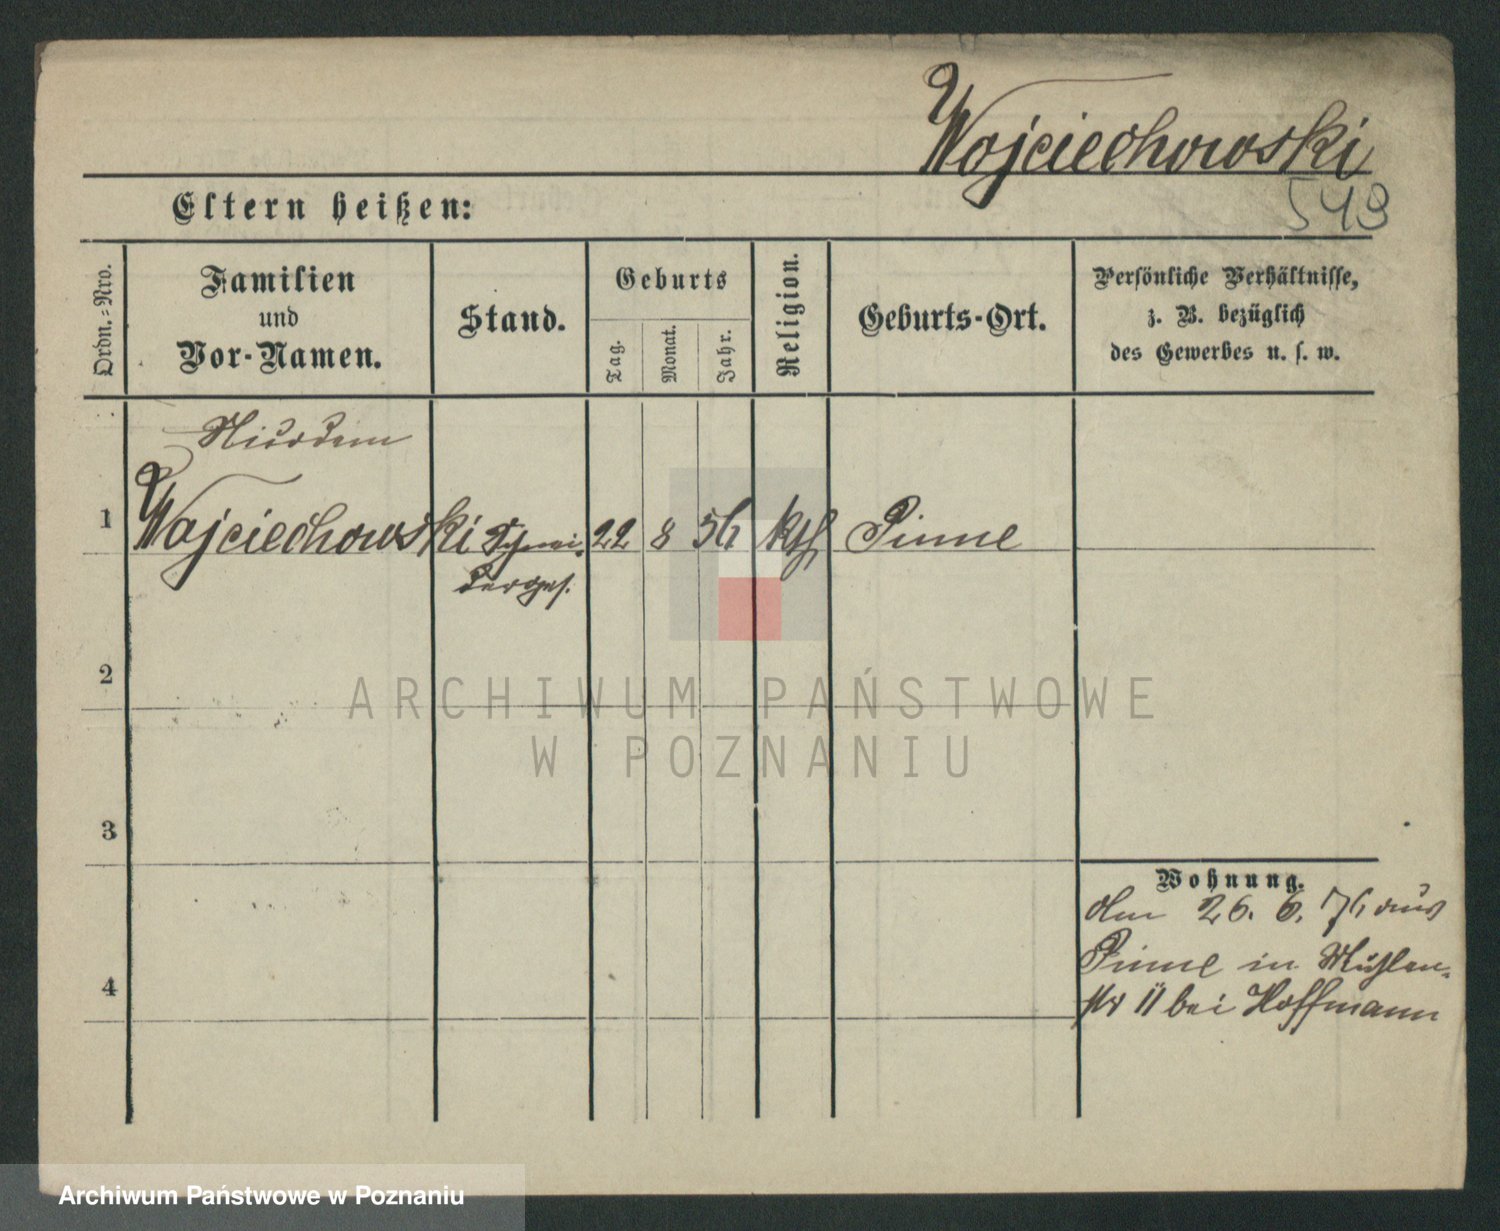 Wojciechowski
543
Eltern heißen:
Ordn.-Nro.
Familien
und
Vor-Namen.
Stand.
Geburts
Tag.
Monat.
Jahr.
Religion.
Geburts-Ort.
Persönliche Verhältnisse,
z. B. bezüglich
des Gewerbes u. s. w.
1
Wojciechowski Schnei- 22 8 56 kth Pinne
derges.
2
3
4
Wohnung.
den 26. 6. 76 aus
Pinne in Mühlen-
str 11 bei Hoffmann
ARCHIWUM PAŃSTWOWE
W POZNANIU
Archiwum Państwowe w Poznaniu